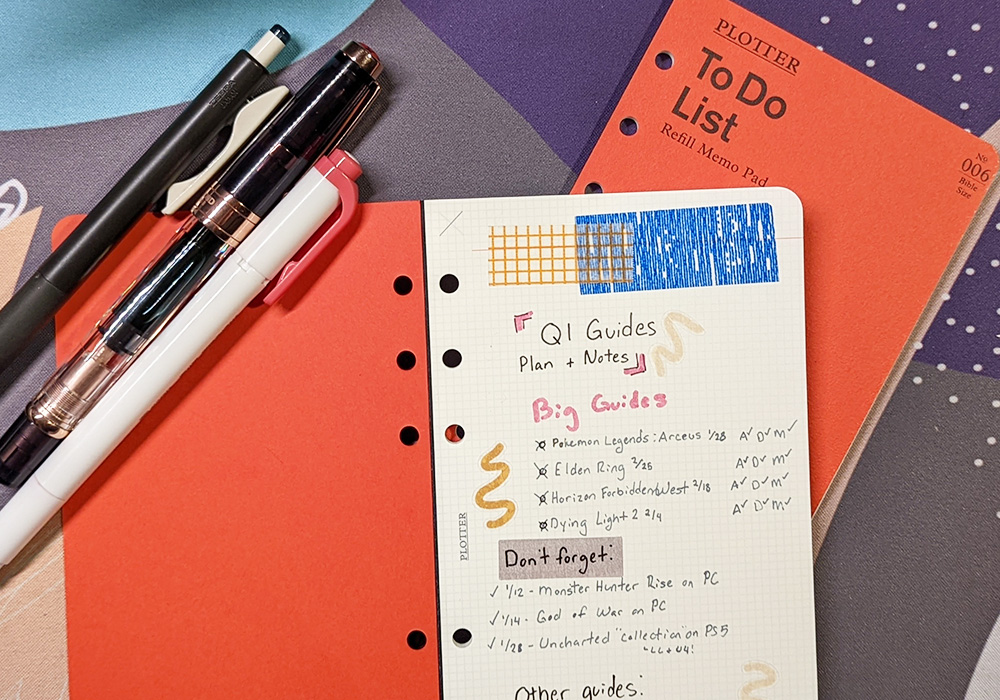 PLOTTER
To Do
List
Refill Memo Pad
No
006
Bible
Size
Q1 Guides
Plan + Notes
Big Guides
Pokemon Legends: Arceus 1/28 A✓ D✓ M✓
Elden Ring 2/25 A✓ D✓ M✓
Horizon Forbidden West 2/18 A✓ D✓ M✓
Dying Light 2 2/4 A✓ D✓ M✓
PLOTTER
Don't forget:
✓ 1/12 - Monster Hunter Rise on PC
✓ 1/14 - God of War on PC
✓ 1/28 - Uncharted "collection" on PS5
LL + U4!
Other guides: